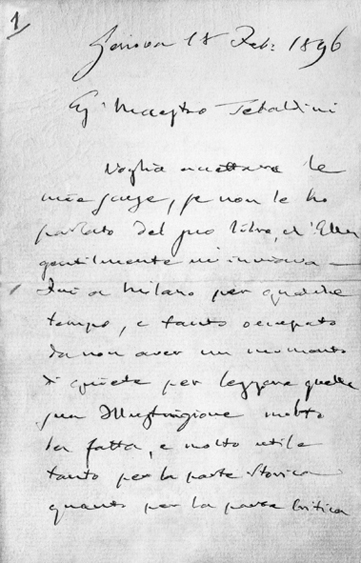 1
Genova 18 Feb: 1896
Eg. Maestro Tebaldini
Voglia accettare le
mie scuse, se non le ho
parlato del suo libro, ch'Ella
gentilmente mi inviava —
Fui a Milano per qualche
tempo, e tanto occupato
da non aver un momento
di quiete per leggere quella
sua Illustrazione molto
ben fatta, e molto utile
tanto per la parte Storica
quanto per la parte Critica